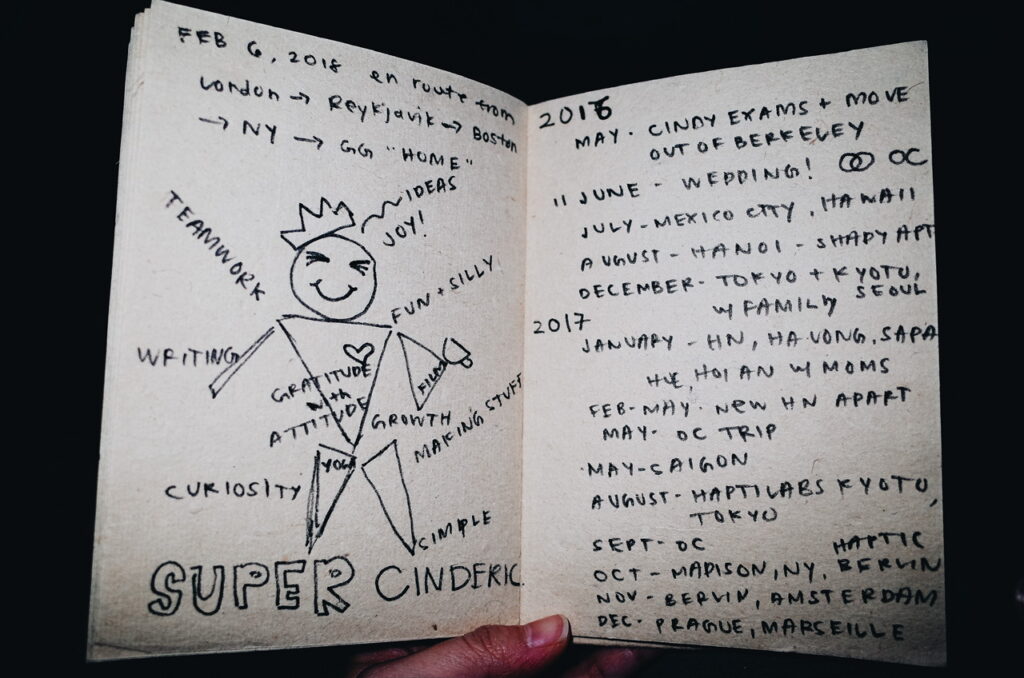 FEB 6, 2018 en route from
London → Reykjavik → Boston
→ NY → GG "HOME"
IDEAS
JOY!
TEAMWORK
FUN + SILLY
WRITING
GRATITUDE
with
ATTITUDE
FILM
GROWTH
MAKING STUFF
YOGA
CURIOSITY
SIMPLE
SUPER CINDERIC
2016
MAY. CINDY EXAMS + MOVE
OUT OF BERKELEY
11 JUNE - WEDDING! OC
JULY - MEXICO CITY, HAWAII
AUGUST - HANOI - SHADY APT
DECEMBER - TOKYO + KYOTO,
W/ FAMILY SEOUL
2017
JANUARY - HN, HA LONG, SAPA
HUE, HOI AN W/ MOMS
FEB-MAY. NEW HN APART
MAY- OC TRIP
MAY-SAIGON
AUGUST - HAPTILABS KYOTO,
TOKYO
SEPT- OC
HAPTIC
OCT - MADISON, NY, BERLIN
NOV - BERLIN, AMSTERDAM
DEC. PRAGUE, MARSEILLE